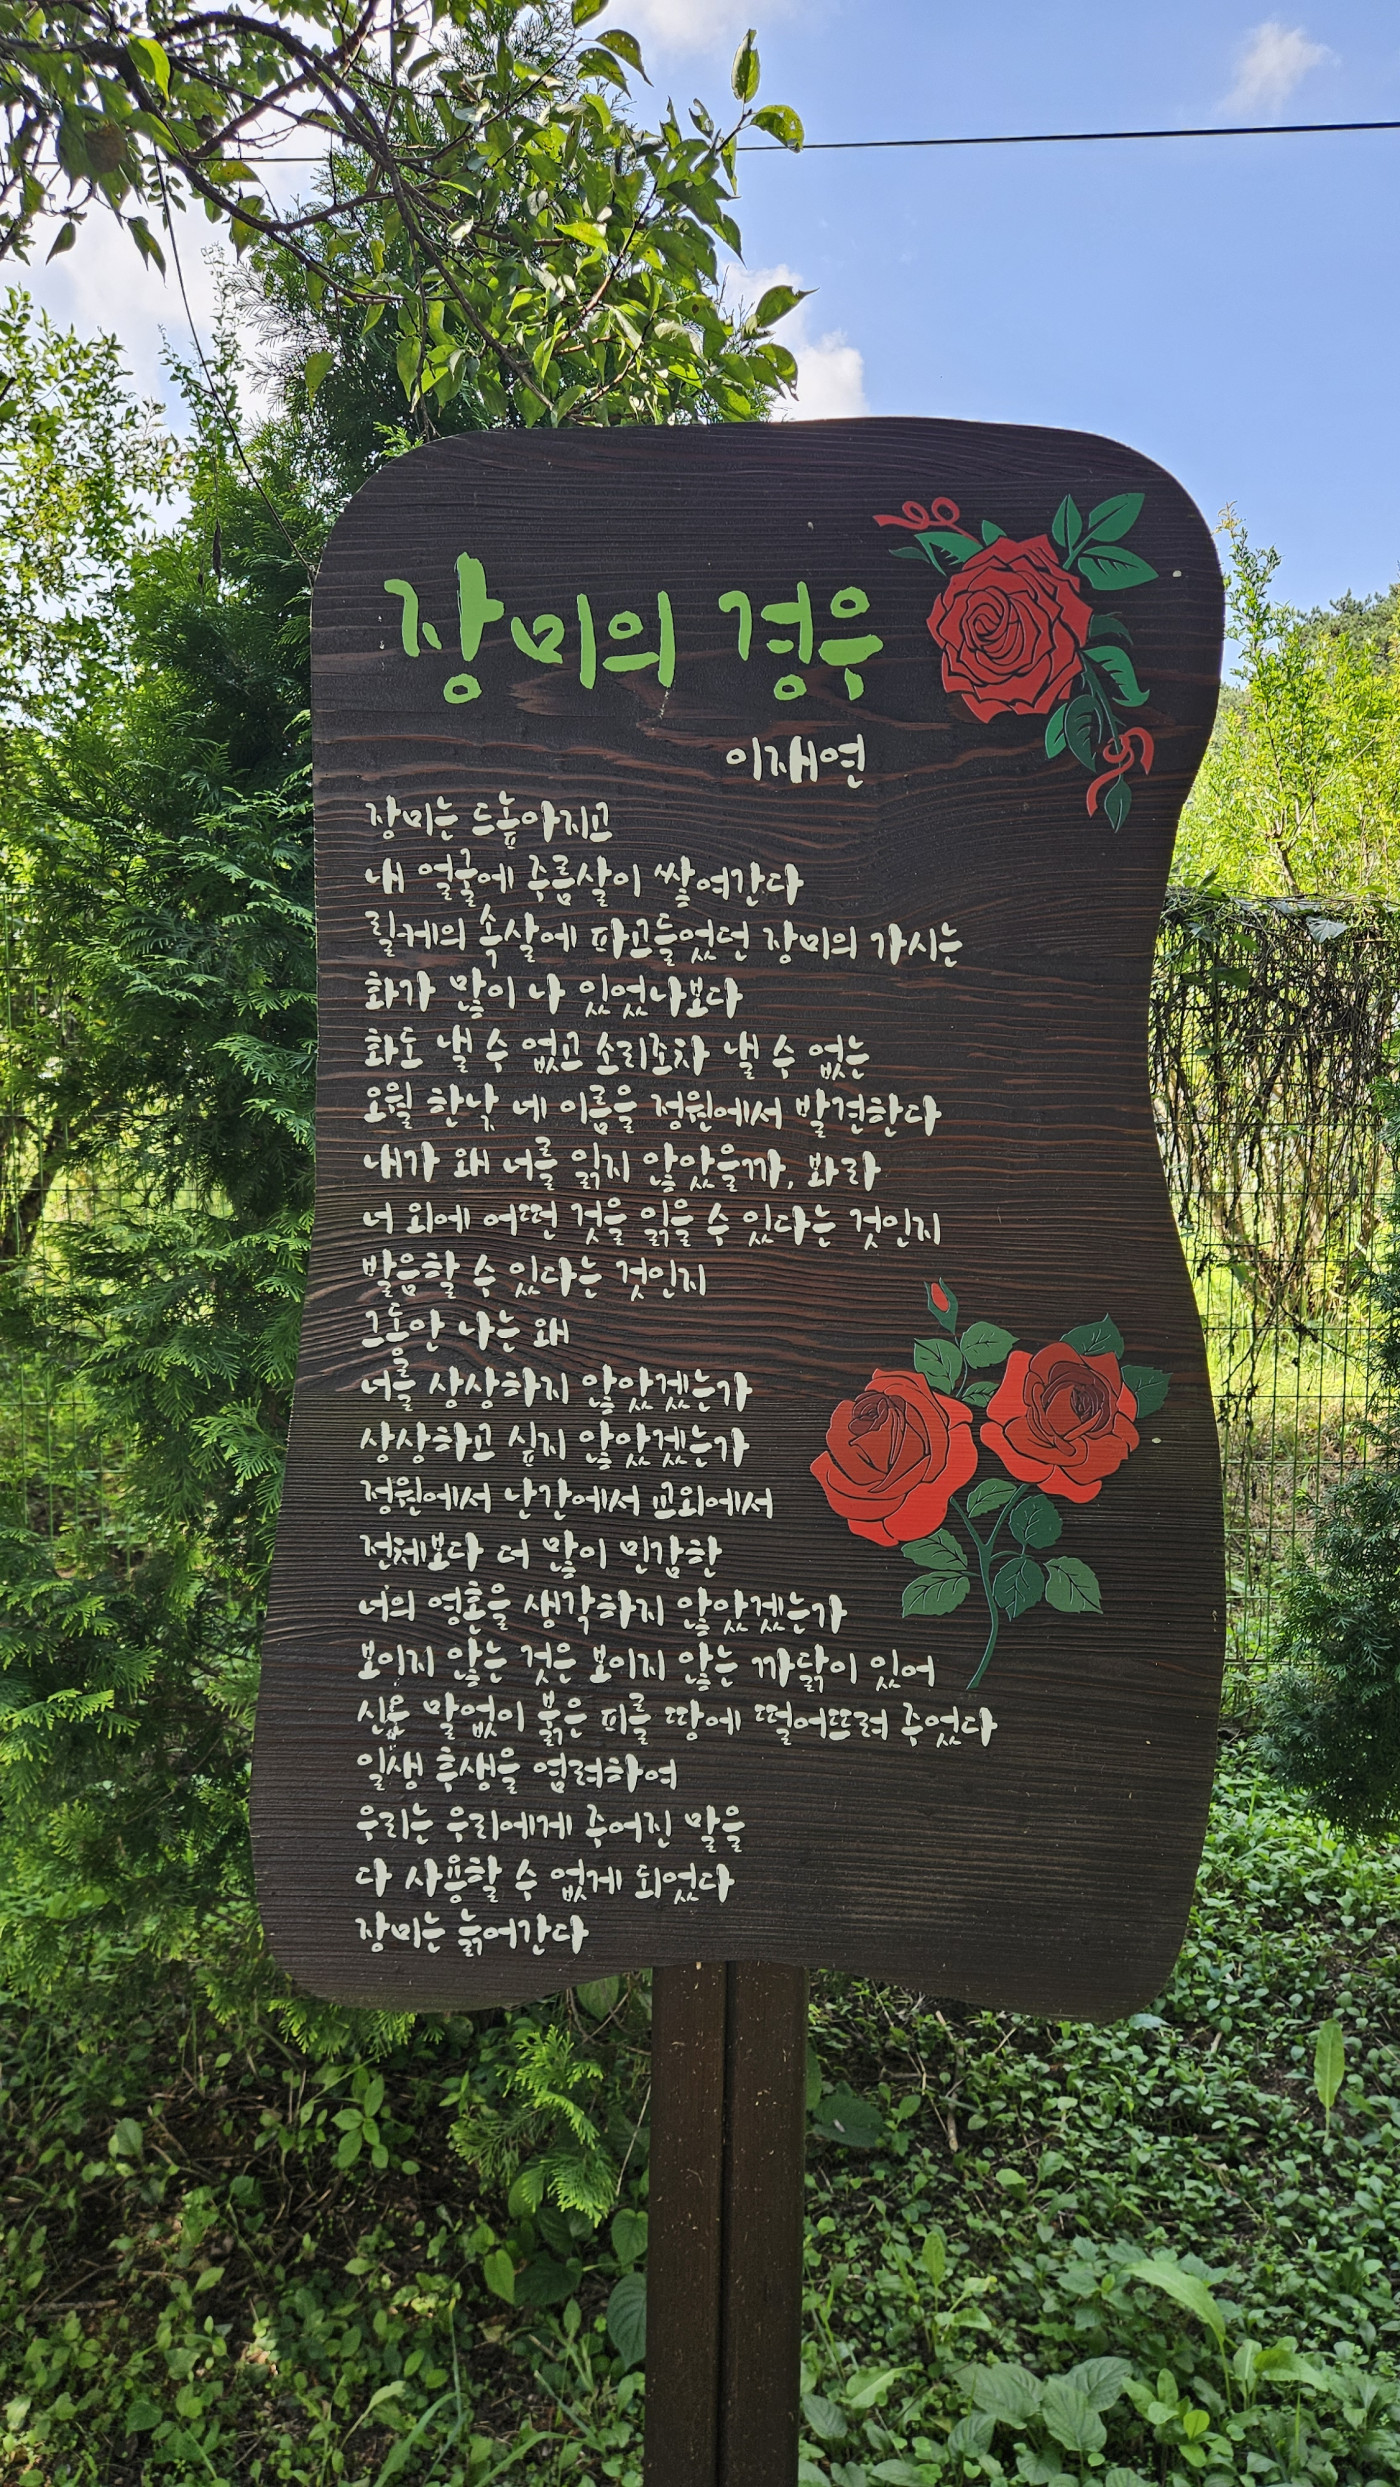 장미의 경우
이재연
장미는 드높아지고
내 얼굴에 주름살이 쌓여간다
릴케의 속살에 파고들었던 장미의 가시는
화가 많이 나 있었나보다
화도 낼 수 없고 소리조차 낼 수 없는
오월 한낮 네 이름을 정원에서 발견한다
내가 왜 너를 읽지 않았을까, 봐라
너 외에 어떤 것을 읽을 수 있다는 것인지
발음할 수 있다는 것인지
그동안 나는 왜
너를 상상하지 않았겠는가
상상하고 싶지 않았겠는가
정원에서 난간에서 교외에서
전체보다 더 많이 민감한
너의 영혼을 생각하지 않았겠는가
보이지 않는 것은 보이지 않는 까닭이 있어
신은 말없이 붉은 피를 땅에 떨어뜨려 주었다
일생 후생을 염려하여
우리는 우리에게 주어진 말을
다 사용할 수 없게 되었다
장미는 늙어간다